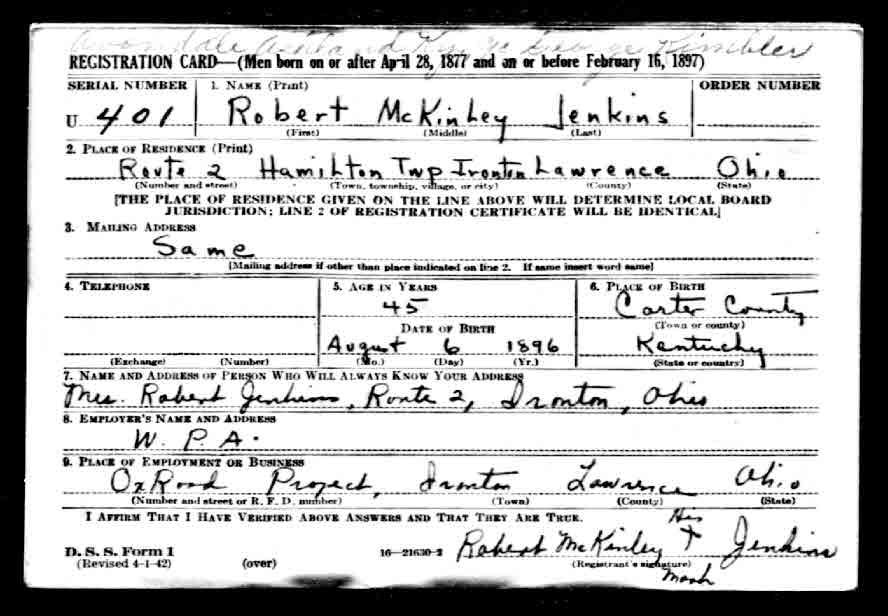 Avondale Ashland Ky. % George Kimbler
REGISTRATION CARD—(Men born on or after April 28, 1877 and on or before February 16, 1897)
SERIAL NUMBER 1. NAME (Print) ORDER NUMBER
U 401 Robert McKinley Jenkins
(First) (Middle) (Last)
2. PLACE OF RESIDENCE (Print)
Route 2 Hamilton Twp Ironton Lawrence Ohio
(Number and street) (Town, township, village, or city) (County) (State)
[THE PLACE OF RESIDENCE GIVEN ON THE LINE ABOVE WILL DETERMINE LOCAL BOARD
JURISDICTION; LINE 2 OF REGISTRATION CERTIFICATE WILL BE IDENTICAL]
3. MAILING ADDRESS
Same
[Mailing address if other than place indicated on line 2. If same insert word same]
4. TELEPHONE 5. AGE IN YEARS 6. PLACE OF BIRTH
45 Carter County
DATE OF BIRTH (Town or county)
August 6 1896 Kentucky
(Exchange) (Number) (Mo.) (Day) (Yr.) (State or country)
7. NAME AND ADDRESS OF PERSON WHO WILL ALWAYS KNOW YOUR ADDRESS
Mrs. Robert Jenkins, Route 2, Ironton, Ohio
8. EMPLOYER'S NAME AND ADDRESS
W. P. A.
9. PLACE OF EMPLOYMENT OR BUSINESS
OxRoad Project, Ironton Lawrence Ohio
(Number and street or R. F. D. number) (Town) (County) (State)
I AFFIRM THAT I HAVE VERIFIED ABOVE ANSWERS AND THAT THEY ARE TRUE.
His
Robert McKinley + Jenkins
D. S. S. Form 1 16—21630-2
(Revised 4-1-42) (over) (Registrant's signature)
Mark